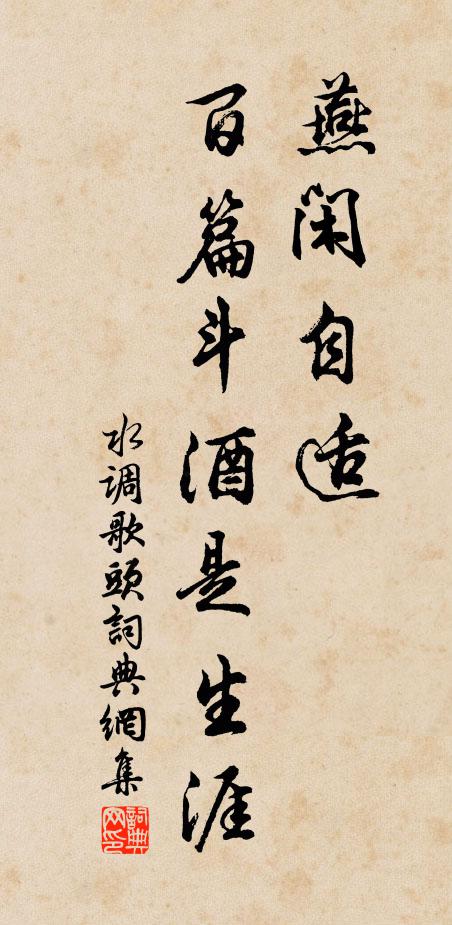 燕闲自适
百篇斗酒是生涯
水调歌頭詞典網集
詞典網印